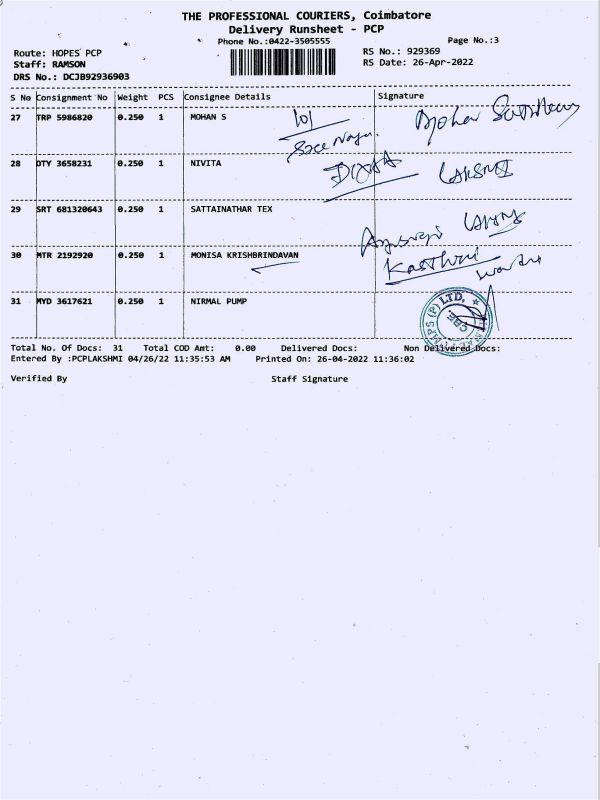 THE PROFESSIONAL COURIERS, Coimbatore
Delivery Runsheet - PCP
Phone No.:0422-3505555 Page No.:3
Route: HOPES PCP RS No.: 929369
Staff: RAMSON RS Date: 26-Apr-2022
DRS No.: DCJB92936903
S No Consignment No Weight PCS Consignee Details Signature
27 TRP 5986820 0.250 1 MOHAN S 101 Mohan
28 DTY 3658231 0.250 1 NIVITA LAKSHMI
29 SRT 681320643 0.250 1 SATTAINATHAR TEX
30 MTR 2192920 0.250 1 MONISA KRISHBRINDAVAN Kasthuri
31 MYD 3617621 0.250 1 NIRMAL PUMP
(P) LTD. CBE
Total No. Of Docs: 31 Total COD Amt: 0.00 Delivered Docs: Non Delivered Docs:
Entered By :PCPLAKSHMI 04/26/22 11:35:53 AM Printed On: 26-04-2022 11:36:02
Verified By Staff Signature